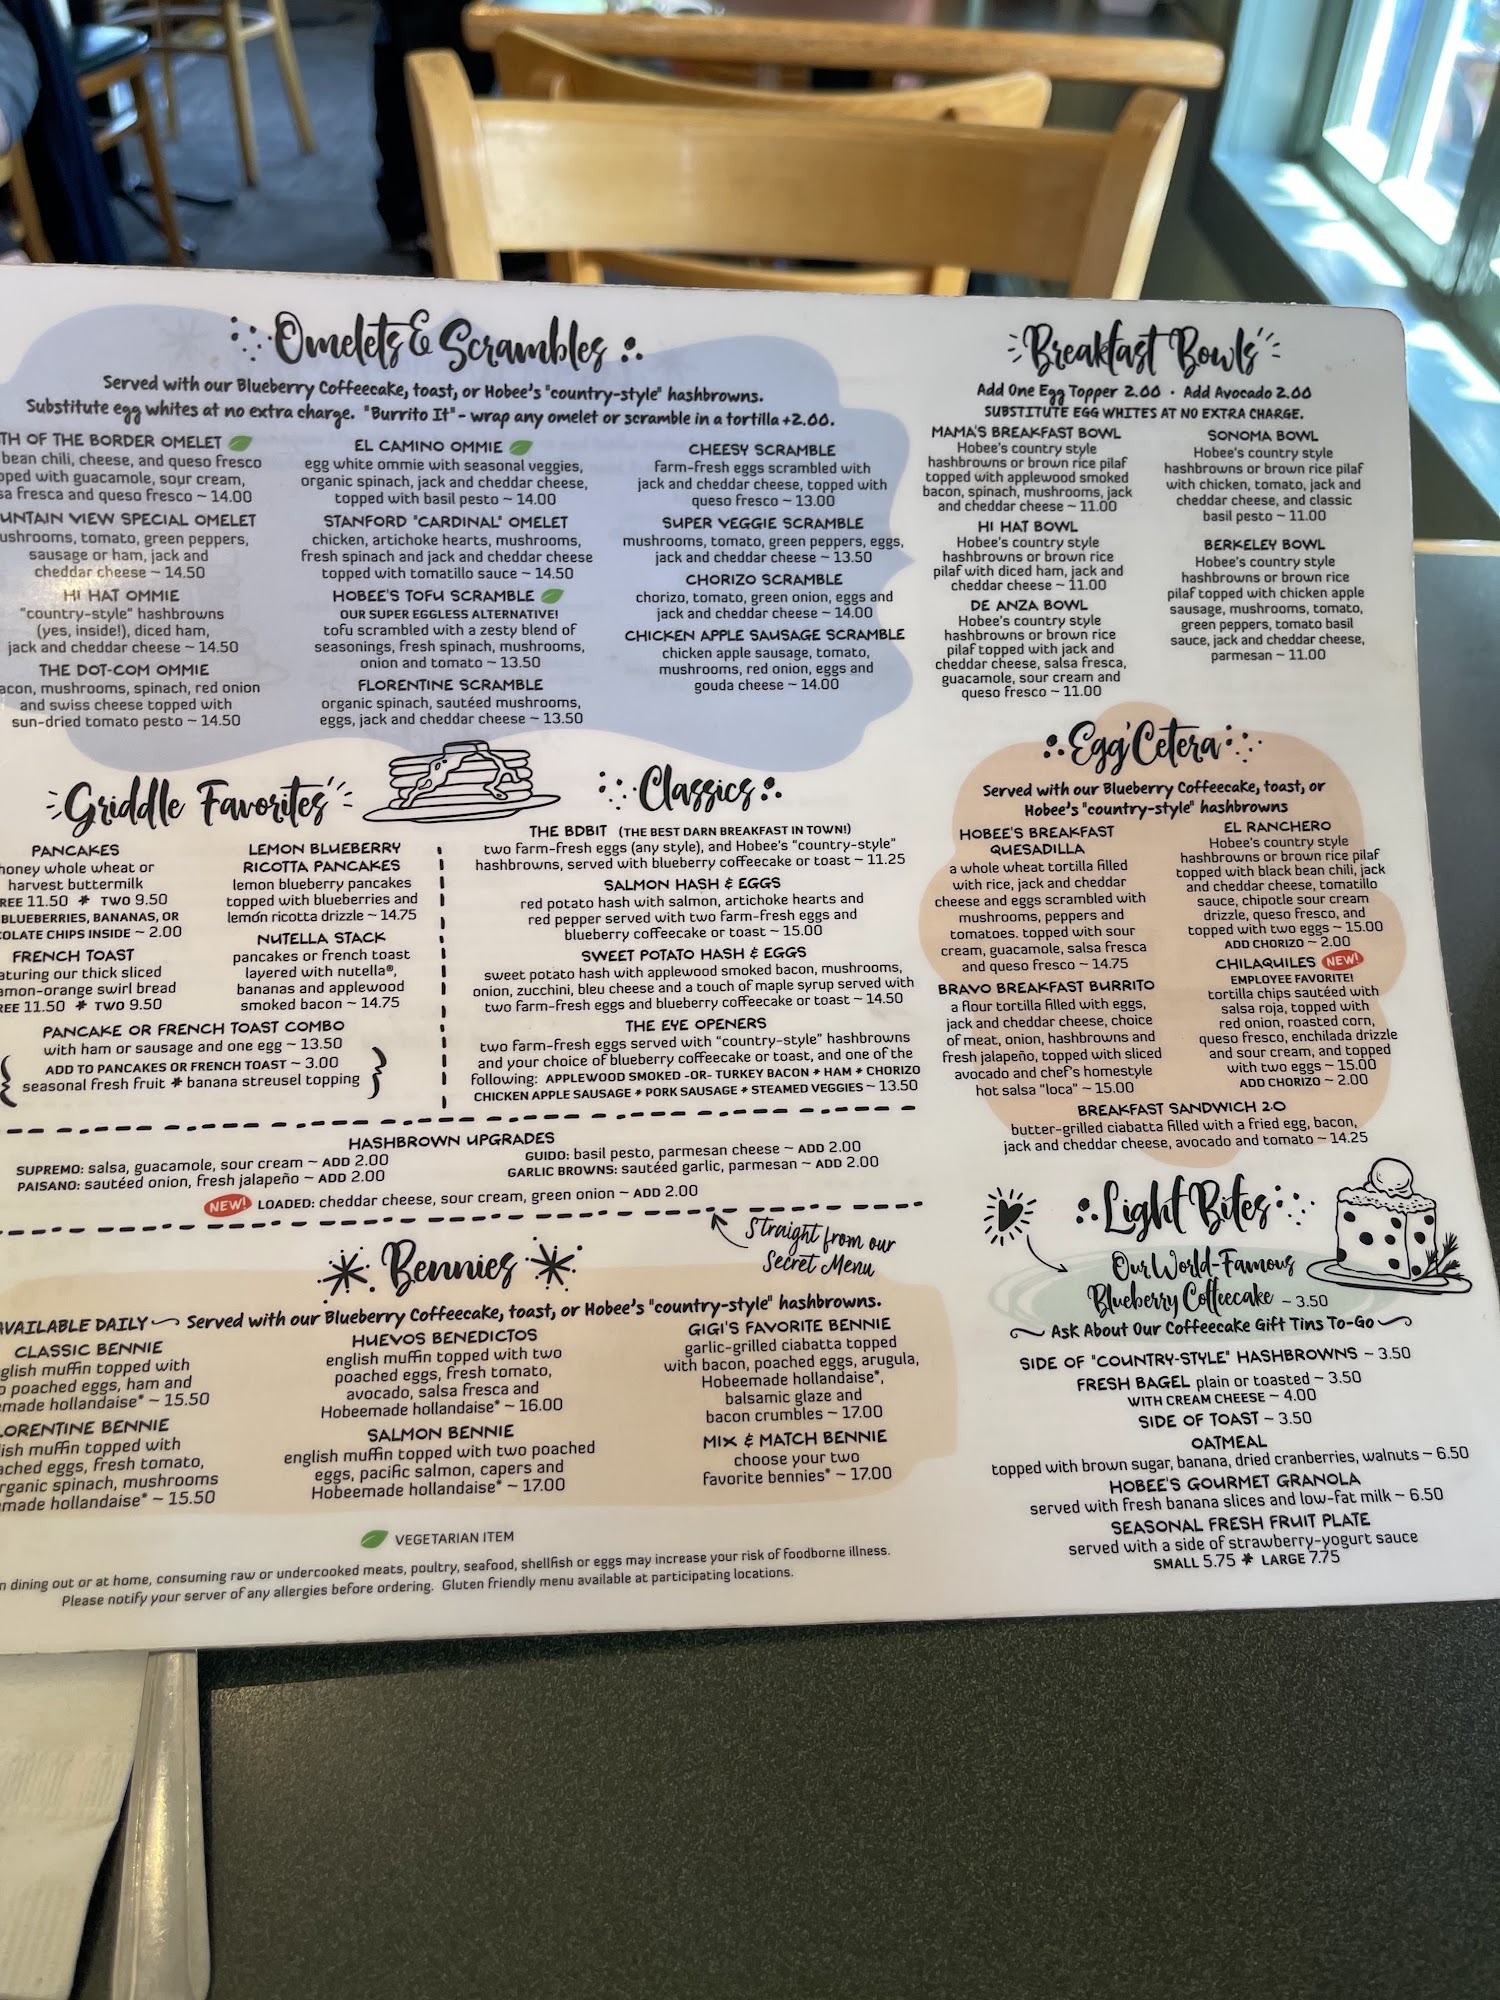 Omelets & Scrambles
Served with our Blueberry Coffeecake, toast, or Hobee's "country-style" hashbrowns.
Substitute egg whites at no extra charge. "Burrito It" - wrap any omelet or scramble in a tortilla +2.00.
TH OF THE BORDER OMELET
bean chili, cheese, and queso fresco
pped with guacamole, sour cream,
sa fresca and queso fresco ~ 14.00
UNTAIN VIEW SPECIAL OMELET
ushrooms, tomato, green peppers,
sausage or ham, jack and
cheddar cheese ~ 14.50
HI HAT OMMIE
"country-style" hashbrowns
(yes, inside!), diced ham,
jack and cheddar cheese ~ 14.50
THE DOT-COM OMMIE
acon, mushrooms, spinach, red onion
and swiss cheese topped with
sun-dried tomato pesto ~ 14.50
EL CAMINO OMMIE
egg white ommie with seasonal veggies,
organic spinach, jack and cheddar cheese,
topped with basil pesto ~ 14.00
STANFORD "CARDINAL" OMELET
chicken, artichoke hearts, mushrooms,
fresh spinach and jack and cheddar cheese
topped with tomatillo sauce ~ 14.50
HOBEE'S TOFU SCRAMBLE
OUR SUPER EGGLESS ALTERNATIVE!
tofu scrambled with a zesty blend of
seasonings, fresh spinach, mushrooms,
onion and tomato ~ 13.50
FLORENTINE SCRAMBLE
organic spinach, sautéed mushrooms,
eggs, jack and cheddar cheese ~ 13.50
CHEESY SCRAMBLE
farm-fresh eggs scrambled with
jack and cheddar cheese, topped with
queso fresco ~ 13.00
SUPER VEGGIE SCRAMBLE
mushrooms, tomato, green peppers, eggs,
jack and cheddar cheese ~ 13.50
CHORIZO SCRAMBLE
chorizo, tomato, green onion, eggs and
jack and cheddar cheese ~ 14.00
CHICKEN APPLE SAUSAGE SCRAMBLE
chicken apple sausage, tomato,
mushrooms, red onion, eggs and
gouda cheese ~ 14.00
Breakfast Bowls
Add One Egg Topper 2.00 · Add Avocado 2.00
SUBSTITUTE EGG WHITES AT NO EXTRA CHARGE.
MAMA'S BREAKFAST BOWL
Hobee's country style
hashbrowns or brown rice pilaf
topped with applewood smoked
bacon, spinach, mushrooms, jack
and cheddar cheese ~ 11.00
HI HAT BOWL
Hobee's country style
hashbrowns or brown rice
pilaf with diced ham, jack and
cheddar cheese ~ 11.00
DE ANZA BOWL
Hobee's country style
hashbrowns or brown rice
pilaf topped with jack and
cheddar cheese, salsa fresca,
guacamole, sour cream and
queso fresco ~ 11.00
SONOMA BOWL
Hobee's country style
hashbrowns or brown rice pilaf
with chicken, tomato, jack and
cheddar cheese, and classic
basil pesto ~ 11.00
BERKELEY BOWL
Hobee's country style
hashbrowns or brown rice
pilaf topped with chicken apple
sausage, mushrooms, tomato,
green peppers, tomato basil
sauce, jack and cheddar cheese,
parmesan ~ 11.00
Griddle Favorites
PANCAKES
honey whole wheat or
harvest buttermilk
REE 11.50 * TWO 9.50
BLUEBERRIES, BANANAS, OR
COLATE CHIPS INSIDE ~ 2.00
FRENCH TOAST
aturing our thick sliced
amon-orange swirl bread
REE 11.50 * TWO 9.50
LEMON BLUEBERRY
RICOTTA PANCAKES
lemon blueberry pancakes
topped with blueberries and
lemon ricotta drizzle ~ 14.75
NUTELLA STACK
pancakes or french toast
layered with nutella®,
bananas and applewood
smoked bacon ~ 14.75
PANCAKE OR FRENCH TOAST COMBO
with ham or sausage and one egg ~ 13.50
ADD TO PANCAKES OR FRENCH TOAST ~ 3.00
seasonal fresh fruit * banana streusel topping
Classics
THE BDBIT (THE BEST DARN BREAKFAST IN TOWN!)
two farm-fresh eggs (any style), and Hobee's "country-style"
hashbrowns, served with blueberry coffeecake or toast ~ 11.25
SALMON HASH & EGGS
red potato hash with salmon, artichoke hearts and
red pepper served with two farm-fresh eggs and
blueberry coffeecake or toast ~ 15.00
SWEET POTATO HASH & EGGS
sweet potato hash with applewood smoked bacon, mushrooms,
onion, zucchini, bleu cheese and a touch of maple syrup served with
two farm-fresh eggs and blueberry coffeecake or toast ~ 14.50
THE EYE OPENERS
two farm-fresh eggs served with "country-style" hashbrowns
and your choice of blueberry coffeecake or toast, and one of the
following: APPLEWOOD SMOKED -OR- TURKEY BACON * HAM * CHORIZO
CHICKEN APPLE SAUSAGE * PORK SAUSAGE * STEAMED VEGGIES ~ 13.50
Egg'Cetera
Served with our Blueberry Coffeecake, toast, or
Hobee's "country-style" hashbrowns
HOBEE'S BREAKFAST
QUESADILLA
a whole wheat tortilla filled
with rice, jack and cheddar
cheese and eggs scrambled with
mushrooms, peppers and
tomatoes. topped with sour
cream, guacamole, salsa fresca
and queso fresco ~ 14.75
BRAVO BREAKFAST BURRITO
a flour tortilla filled with eggs,
jack and cheddar cheese, choice
of meat, onion, hashbrowns and
fresh jalapeño, topped with sliced
avocado and chef's homestyle
hot salsa "loca" ~ 15.00
EL RANCHERO
Hobee's country style
hashbrowns or brown rice pilaf
topped with black bean chili, jack
and cheddar cheese, tomatillo
sauce, chipotle sour cream
drizzle, queso fresco, and
topped with two eggs ~ 15.00
ADD CHORIZO ~ 2.00
CHILAQUILES NEW!
EMPLOYEE FAVORITE!
tortilla chips sautéed with
salsa roja, topped with
red onion, roasted corn,
queso fresco, enchilada drizzle
and sour cream, and topped
with two eggs ~ 15.00
ADD CHORIZO ~ 2.00
BREAKFAST SANDWICH 2.0
butter-grilled ciabatta filled with a fried egg, bacon,
jack and cheddar cheese, avocado and tomato ~ 14.25
HASHBROWN UPGRADES
SUPREMO: salsa, guacamole, sour cream ~ ADD 2.00
PAISANO: sautéed onion, fresh jalapeño ~ ADD 2.00
GUIDO: basil pesto, parmesan cheese ~ ADD 2.00
GARLIC BROWNS: sautéed garlic, parmesan ~ ADD 2.00
NEW! LOADED: cheddar cheese, sour cream, green onion ~ ADD 2.00
Straight from our
Secret Menu
Bennies
AVAILABLE DAILY Served with our Blueberry Coffeecake, toast, or Hobee's "country-style" hashbrowns.
CLASSIC BENNIE
glish muffin topped with
o poached eggs, ham and
emade hollandaise* ~ 15.50
LORENTINE BENNIE
lish muffin topped with
ached eggs, fresh tomato,
rganic spinach, mushrooms
emade hollandaise* ~ 15.50
HUEVOS BENEDICTOS
english muffin topped with two
poached eggs, fresh tomato,
avocado, salsa fresca and
Hobeemade hollandaise* ~ 16.00
SALMON BENNIE
english muffin topped with two poached
eggs, pacific salmon, capers and
Hobeemade hollandaise* ~ 17.00
GIGI'S FAVORITE BENNIE
garlic-grilled ciabatta topped
with bacon, poached eggs, arugula,
Hobeemade hollandaise*,
balsamic glaze and
bacon crumbles ~ 17.00
MIX & MATCH BENNIE
choose your two
favorite bennies* ~ 17.00
Light Bites
Our World-Famous
Blueberry Coffeecake ~ 3.50
Ask About Our Coffeecake Gift Tins To-Go
SIDE OF "COUNTRY-STYLE" HASHBROWNS ~ 3.50
FRESH BAGEL plain or toasted ~ 3.50
WITH CREAM CHEESE ~ 4.00
SIDE OF TOAST ~ 3.50
OATMEAL
topped with brown sugar, banana, dried cranberries, walnuts ~ 6.50
HOBEE'S GOURMET GRANOLA
served with fresh banana slices and low-fat milk ~ 6.50
SEASONAL FRESH FRUIT PLATE
served with a side of strawberry-yogurt sauce
SMALL 5.75 * LARGE 7.75
VEGETARIAN ITEM
n dining out or at home, consuming raw or undercooked meats, poultry, seafood, shellfish or eggs may increase your risk of foodborne illness.
Please notify your server of any allergies before ordering. Gluten friendly menu available at participating locations.